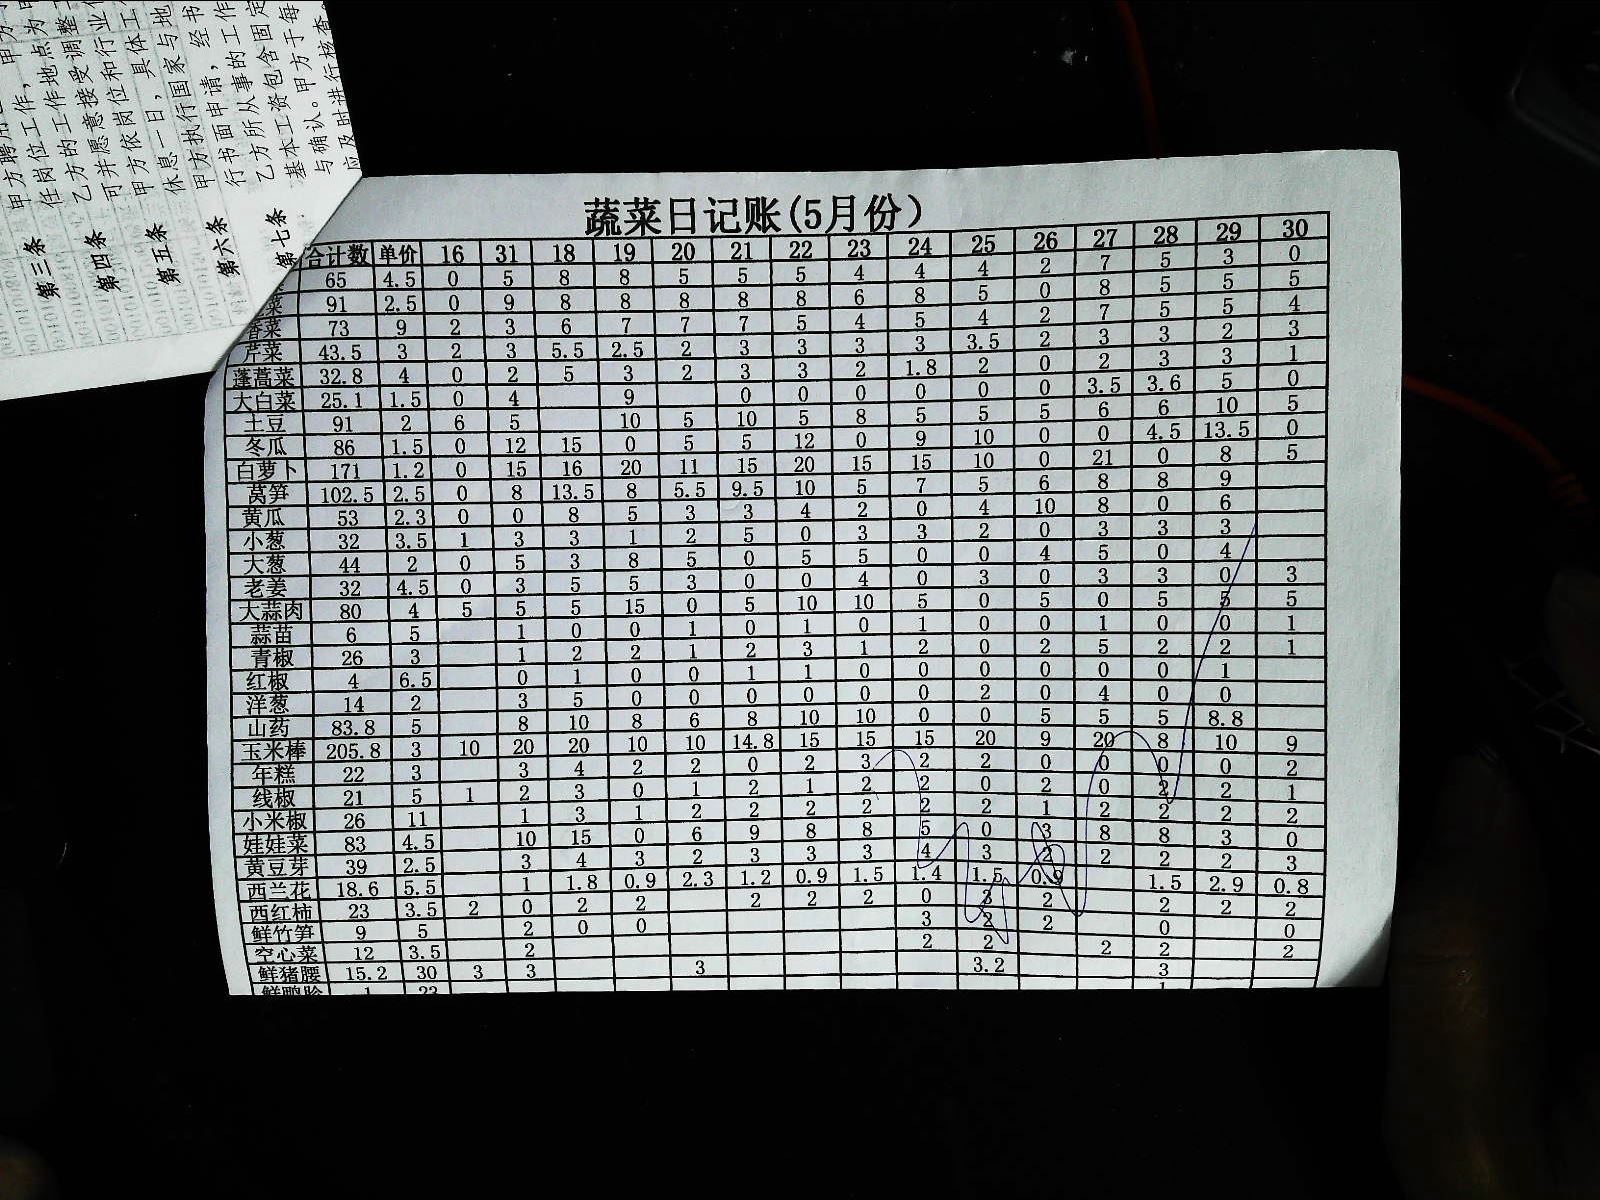 甲方聘用
任岗位工作,
乙方的工作地点为
可并愿意接受调整
甲方依岗位和行业
休息一日, 具体工
甲方执行国家与地
行书面申请, 经书
乙方所从事的工作
基本工资包含固定
与确认。甲方于每
应及时进行核查
第三条
第四条
第五条
第六条
第七条
蔬菜日记账(5月份)
合计数 单价 16 31 18 19 20 21 22 23 24 25 26 27 28 29 30
65 4.5 0 5 8 8 5 5 5 4 4 4 2 7 5 3 0
菜 91 2.5 0 9 8 8 8 8 8 6 8 5 0 8 5 5 5
香菜 73 9 2 3 6 7 7 7 5 4 5 4 2 7 5 5 4
芹菜 43.5 3 2 3 5.5 2.5 2 3 3 3 3 3.5 2 3 3 2 3
蓬蒿菜 32.8 4 0 2 5 3 2 3 3 2 1.8 2 0 2 3 3 1
大白菜 25.1 1.5 0 4 9 0 0 0 0 0 0 3.5 3.6 5 0
土豆 91 2 6 5 10 5 10 5 8 5 5 5 6 6 10 5
冬瓜 86 1.5 0 12 15 0 5 5 12 0 9 10 0 0 4.5 13.5 0
白萝卜 171 1.2 0 15 16 20 11 15 20 15 15 10 0 21 0 8 5
莴笋 102.5 2.5 0 8 13.5 8 5.5 9.5 10 5 7 5 6 8 8 9
黄瓜 53 2.3 0 0 8 5 3 3 4 2 0 4 10 8 0 6
小葱 32 3.5 1 3 3 1 2 5 0 3 3 2 0 3 3 3
大葱 44 2 0 5 3 8 5 0 5 5 0 0 4 5 0 4
老姜 32 4.5 0 3 5 5 3 0 0 4 0 3 0 3 3 0 3
大蒜肉 80 4 5 5 5 15 0 5 10 10 5 0 5 0 5 5 5
蒜苗 6 5 1 0 0 1 0 1 0 1 0 0 1 0 0 1
青椒 26 3 1 2 2 1 2 3 1 2 0 2 5 2 2 1
红椒 4 6.5 0 1 0 0 1 1 0 0 0 0 0 0 1
洋葱 14 2 3 5 0 0 0 0 0 0 2 0 4 0 0
山药 83.8 5 8 10 8 6 8 10 10 0 0 5 5 5 8.8
玉米棒 205.8 3 10 20 20 10 10 14.8 15 15 15 20 9 20 8 10 9
年糕 22 3 3 4 2 2 0 2 3 2 2 0 0 0 0 2
线椒 21 5 1 2 3 0 1 2 1 2 2 0 2 0 2 2 1
小米椒 26 11 1 3 1 2 2 2 2 2 2 1 2 2 2 2
娃娃菜 83 4.5 10 15 0 6 9 8 8 5 0 3 8 8 3 0
黄豆芽 39 2.5 3 4 3 2 3 3 3 4 3 2 2 2 2 3
西兰花 18.6 5.5 1 1.8 0.9 2.3 1.2 0.9 1.5 1.4 1.5 0.9 1.5 2.9 0.8
西红柿 23 3.5 2 0 2 2 2 2 2 0 3 2 2 2 2
鲜竹笋 9 5 2 0 0 3 2 2 0 0
空心菜 12 3.5 2 2 2 2 2 2
鲜猪腰 15.2 30 3 3 3 3.2 3
鲜鸭胗 1 23 1